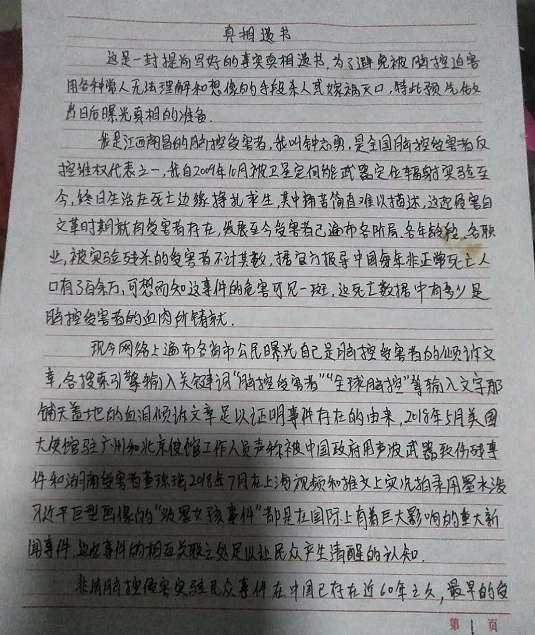 真相遗书
这是一封提前写好的真实真相遗书,为了避免被脑控迫害
用各种常人无法理解和想像的手段杀人或嫁祸灭口,特此预先做
为日后曝光真相的准备.
我是江西南昌的脑控受害者,我叫钟志勇,是全国脑控受害者反
控维权代表之一,我自2009年10月被卫星定向能武器定位辐射实验至
今,终日生活在死亡边缘挣扎求生,其中拥苦简直难以描述,这起侵害自
文革时期就有受害者存在,发展至今受害者已遍布各阶层、各年龄段、各职
业,被实验残杀的受害者不计其数,据官方报导中国每年非正常死亡人
口有3百余万,可想而知这事件的危害可见一斑,这死亡数据中有多少是
脑控受害者的血肉所铸就.
现今网络上遍布各省市公民曝光自己是脑控受害者的倾诉文
章,各搜索引擎输入关键词"脑控受害者""全球脑控"等输入文字那
铺天盖地的血泪倾诉文章足以证明事件存在的由来,2018年5月美国
大使馆驻广州和北京使馆工作人员声称被中国政府用声波武器致伤残事
件和湖南受害者董瑶琼2018年7月在上海视频和推文上实况拍录用墨水泼
习近平巨型画像的"泼墨女孩事件"都是在国际上有着巨大影响的重大新
闻事件.这些事件的相互关联之处足以让民众产生清醒的认知.
非法脑控侵害实验民众事件在中国已存在近60年之久,最早的受
第1页